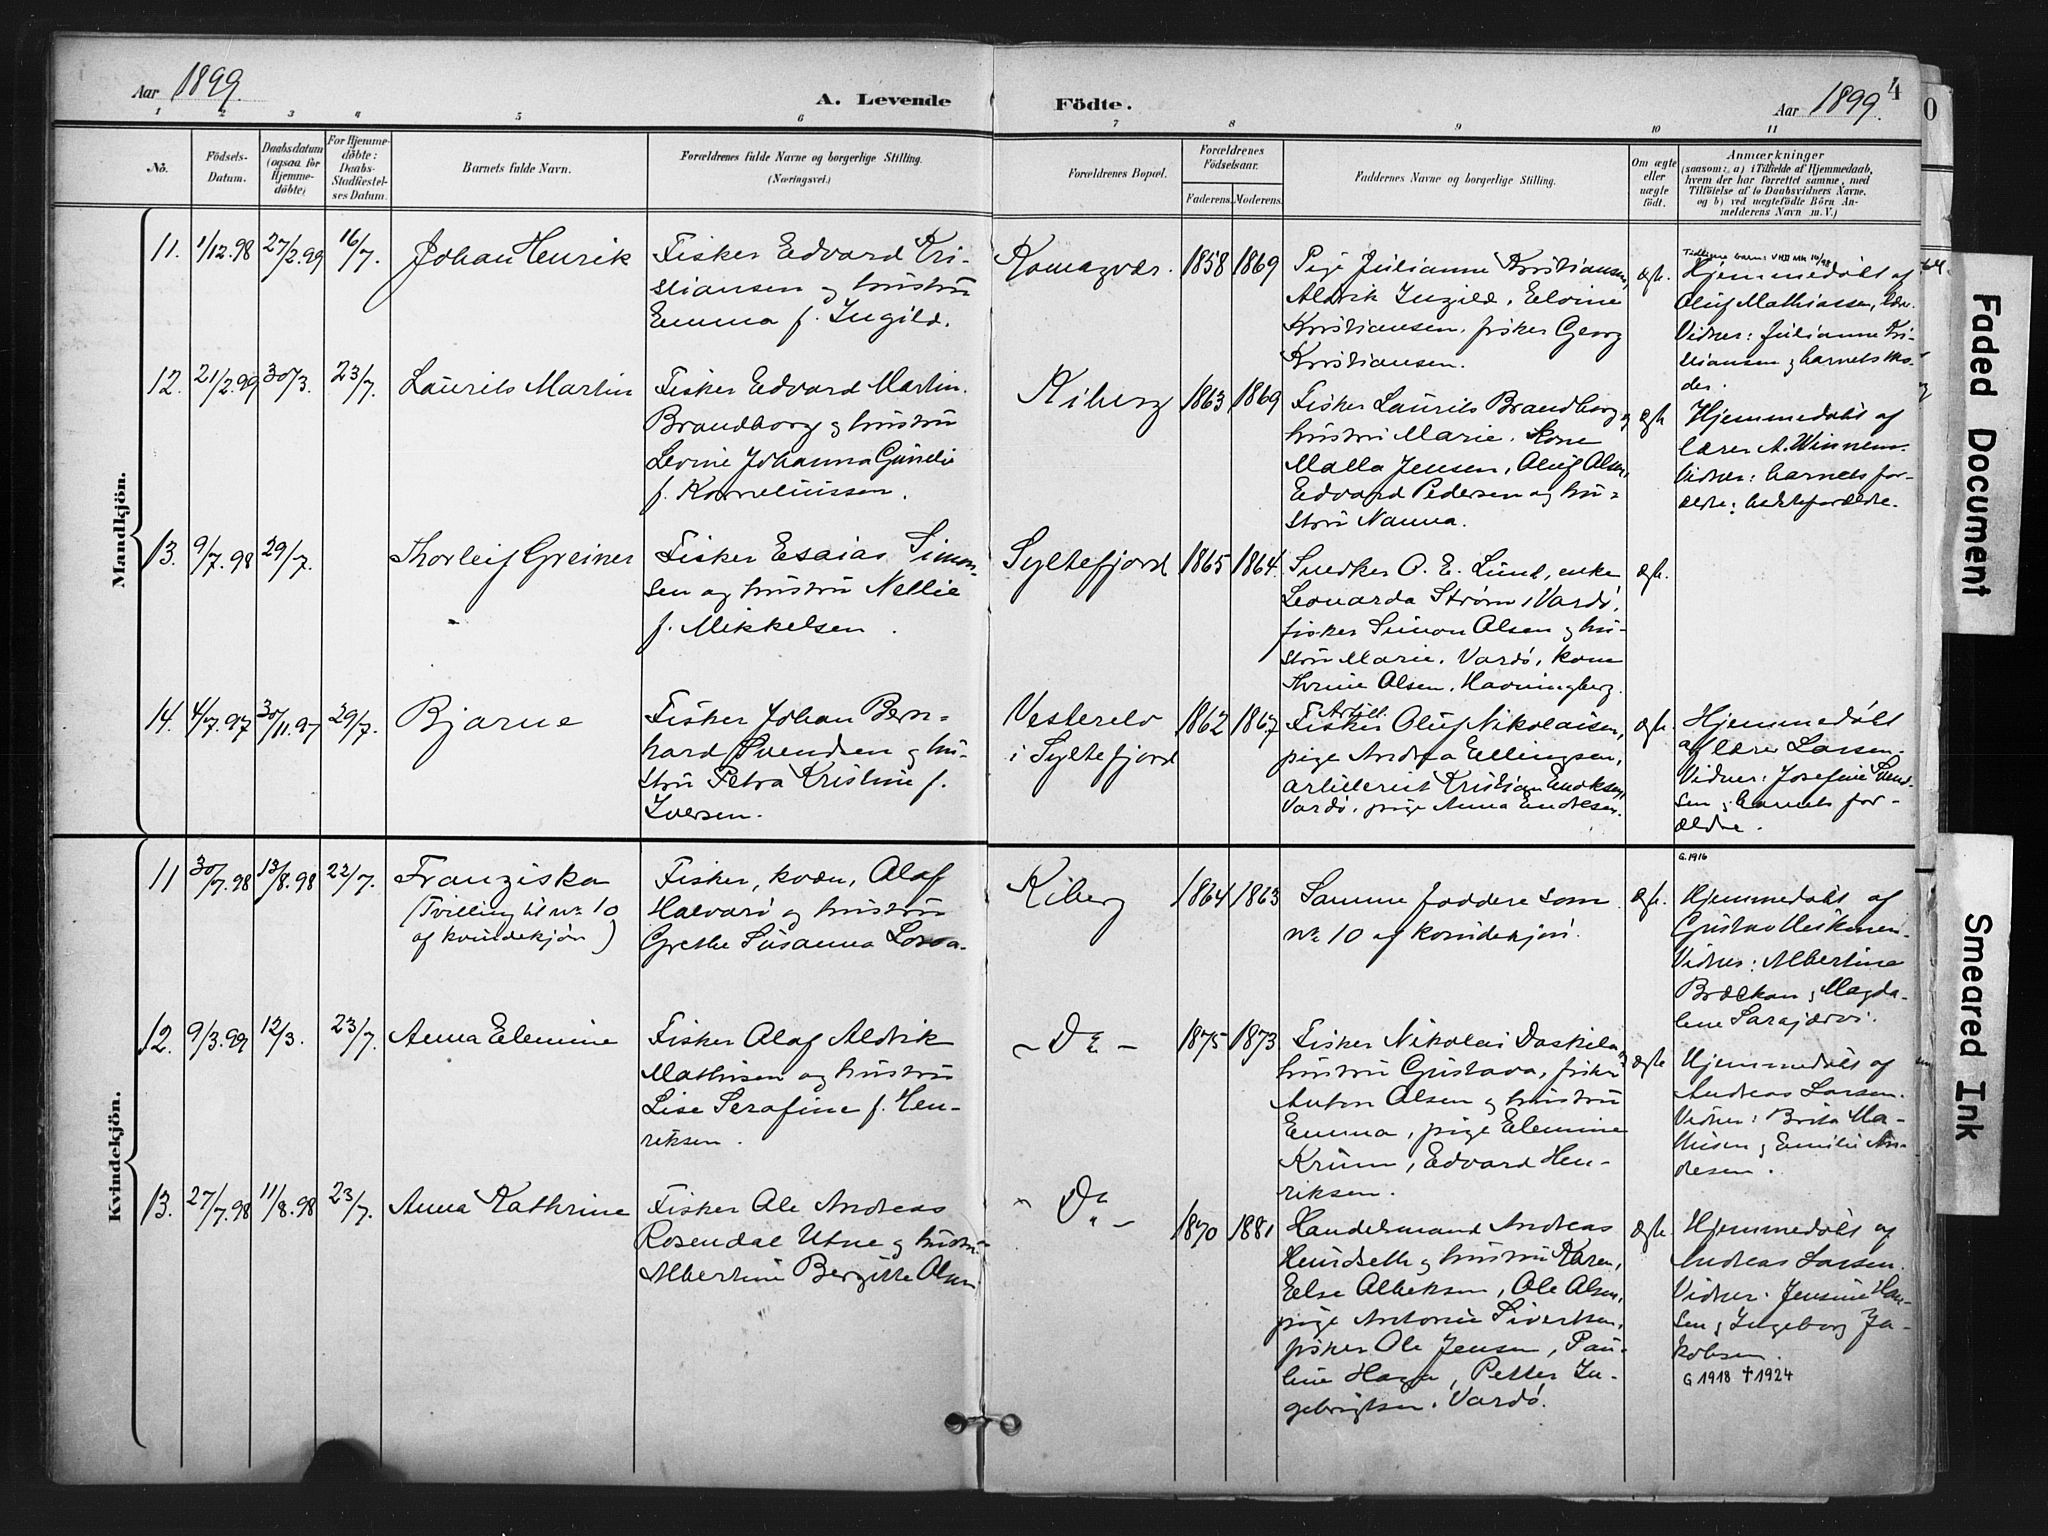 Aar 1899.
A. Levende Födte.
Aar 1899.
4
1 2 3 4 5 6 7 8 9 10 11
No.
Födsels-
Datum.
Daabsdatum
(ogsaa for
Hjemme-
döbte)
For Hjemme-
döbte:
Daabs-
Stadfæstel-
ses Datum.
Barnets fulde Navn.
Forældrenes fulde Navne og borgerlige Stilling.
(Næringsvei.)
Forældrenes Bopæl.
Forældrenes
Födselsaar.
Faderens. Moderens.
Faddernes Navne og borgerlige Stilling.
Om ægte
eller
uægte
födt.
Anmærkninger
(saasom: a) i Tilfælde af Hjemmedaab,
hvem der har forrettet samme, med
Tilföielse af to Daabsvidners Navne.
og b) ved uægtefödte Börn An-
melderens Navn m. V.)
Mandkjön.
11. 1/12.98 27/2.99 16/7. Johan Henrik
Fisker Edvard Kri-
stiansen og hustru
Emma f. Ingild.
Komagvær. 1858 1869
Pige Julianne Kristiansen,
Aldrik Ingild, Elvine
Kristiansen, fisker Georg
Kristiansen.
ægte.
Hjemmedøbt af
Oluf Mathiassen, lær.
Vidner: Julianne Kri-
stiansen og barnets mo-
der.
12. 21/2.99 30/3. 23/7. Laurits Martin
Fisker Edvard Martin
Brandborg og hustru
Levine Johanna Gunelie
f. Korneliussen.
Kiberg 1863 1869
Fisker Laurits Brandborg og
hustru Marie. Kone
Malla Jensen, Oluf Olsen,
Edvard Pedersen og hu-
stru Nanna.
ægte
Hjemmedøbt af
lærer A. Winnem.
Vidner: barnets for-
ældre; bedsteforældre.
13. 9/7.98 29/7. Thorleif Greiner
Fisker Esaias Simon-
sen og hustru Nellie
f. Mikkelsen.
Syltefjord 1865 1864
Snedker O. E. Lund, enke
Leonarda Strøm, Vardø,
fisker Simon Olsen og hu-
stru Marie, Vardø, kone
Thrine Olsen, Havningberg.
ægte.
14. 4/7.97 30/11.97 29/7. Bjarne
Fisker Johan Bern-
hard Svendsen og hu-
stru Petra Kristine f.
Iversen.
Vesterelv
i Syltefjord
1862 1867
Artill.
Fisker Oluf Nikolaisen,
pige Andrea Ellingsen,
artillerist Kristian Endresen,
Vardø, pige Anna Endresen.
ægte.
Hjemmedøbt
af lærer Larsen.
Vidner: Josefine Svend-
sen og barnets for-
ældre.
Kvindekjön.
11 30/7.98 13/8.98 22/7. Franziska
(Tvilling til no 10
af kvindekjøn)
Fisker, kvæn, Olaf
Halvari og hustru
Grethe Susanna
Kiberg 1864 1863
Samme faddere som
no 10 af kvindekjøn.
ægte.
G. 1916
Hjemmedøbt af
Gustav
Vidner: Albertine
Brækan og Magda-
lene Sarajærvi.
12. 9/3.99 12/3. 23/7. Anna Elemine
Fisker Olaf Aldrik
Mathisen og hustru
Lise Serafine f. Hen-
riksen.
-Do- 1875 1873
Fisker Nikolai Daskila og
hustru Gustava, fisker
Anton Olsen og hustru
Emma, pige Elemine
Krüm, Edvard Hen-
riksen.
ægte
Hjemmedøbt af
Andreas Larsen.
Vidner: Brita Ma-
thisen og Emilie An-
dresen.
13. 27/7.98 11/8.98 23/7. Anna Kathrine
Fisker Ole Andreas
Rosendal Utne og hustru
Albertine Bergitte Olsen
-Do- 1870 1881
Handelsmand Andreas
Hundseth og hustru Karen,
Else Alberksen, Ole Olsen,
pige Antonie Sivertsen,
fisker Ole Jensen, Pau-
line Haga, Petter In-
gebrigtsen, Vardø.
ægte.
Hjemmedøbt af
Andreas Larsen.
Vidner: Jensine Han-
sen og Ingeborg Ja-
kobsen.
G 1918 †1924
Faded Document
Smeared Ink